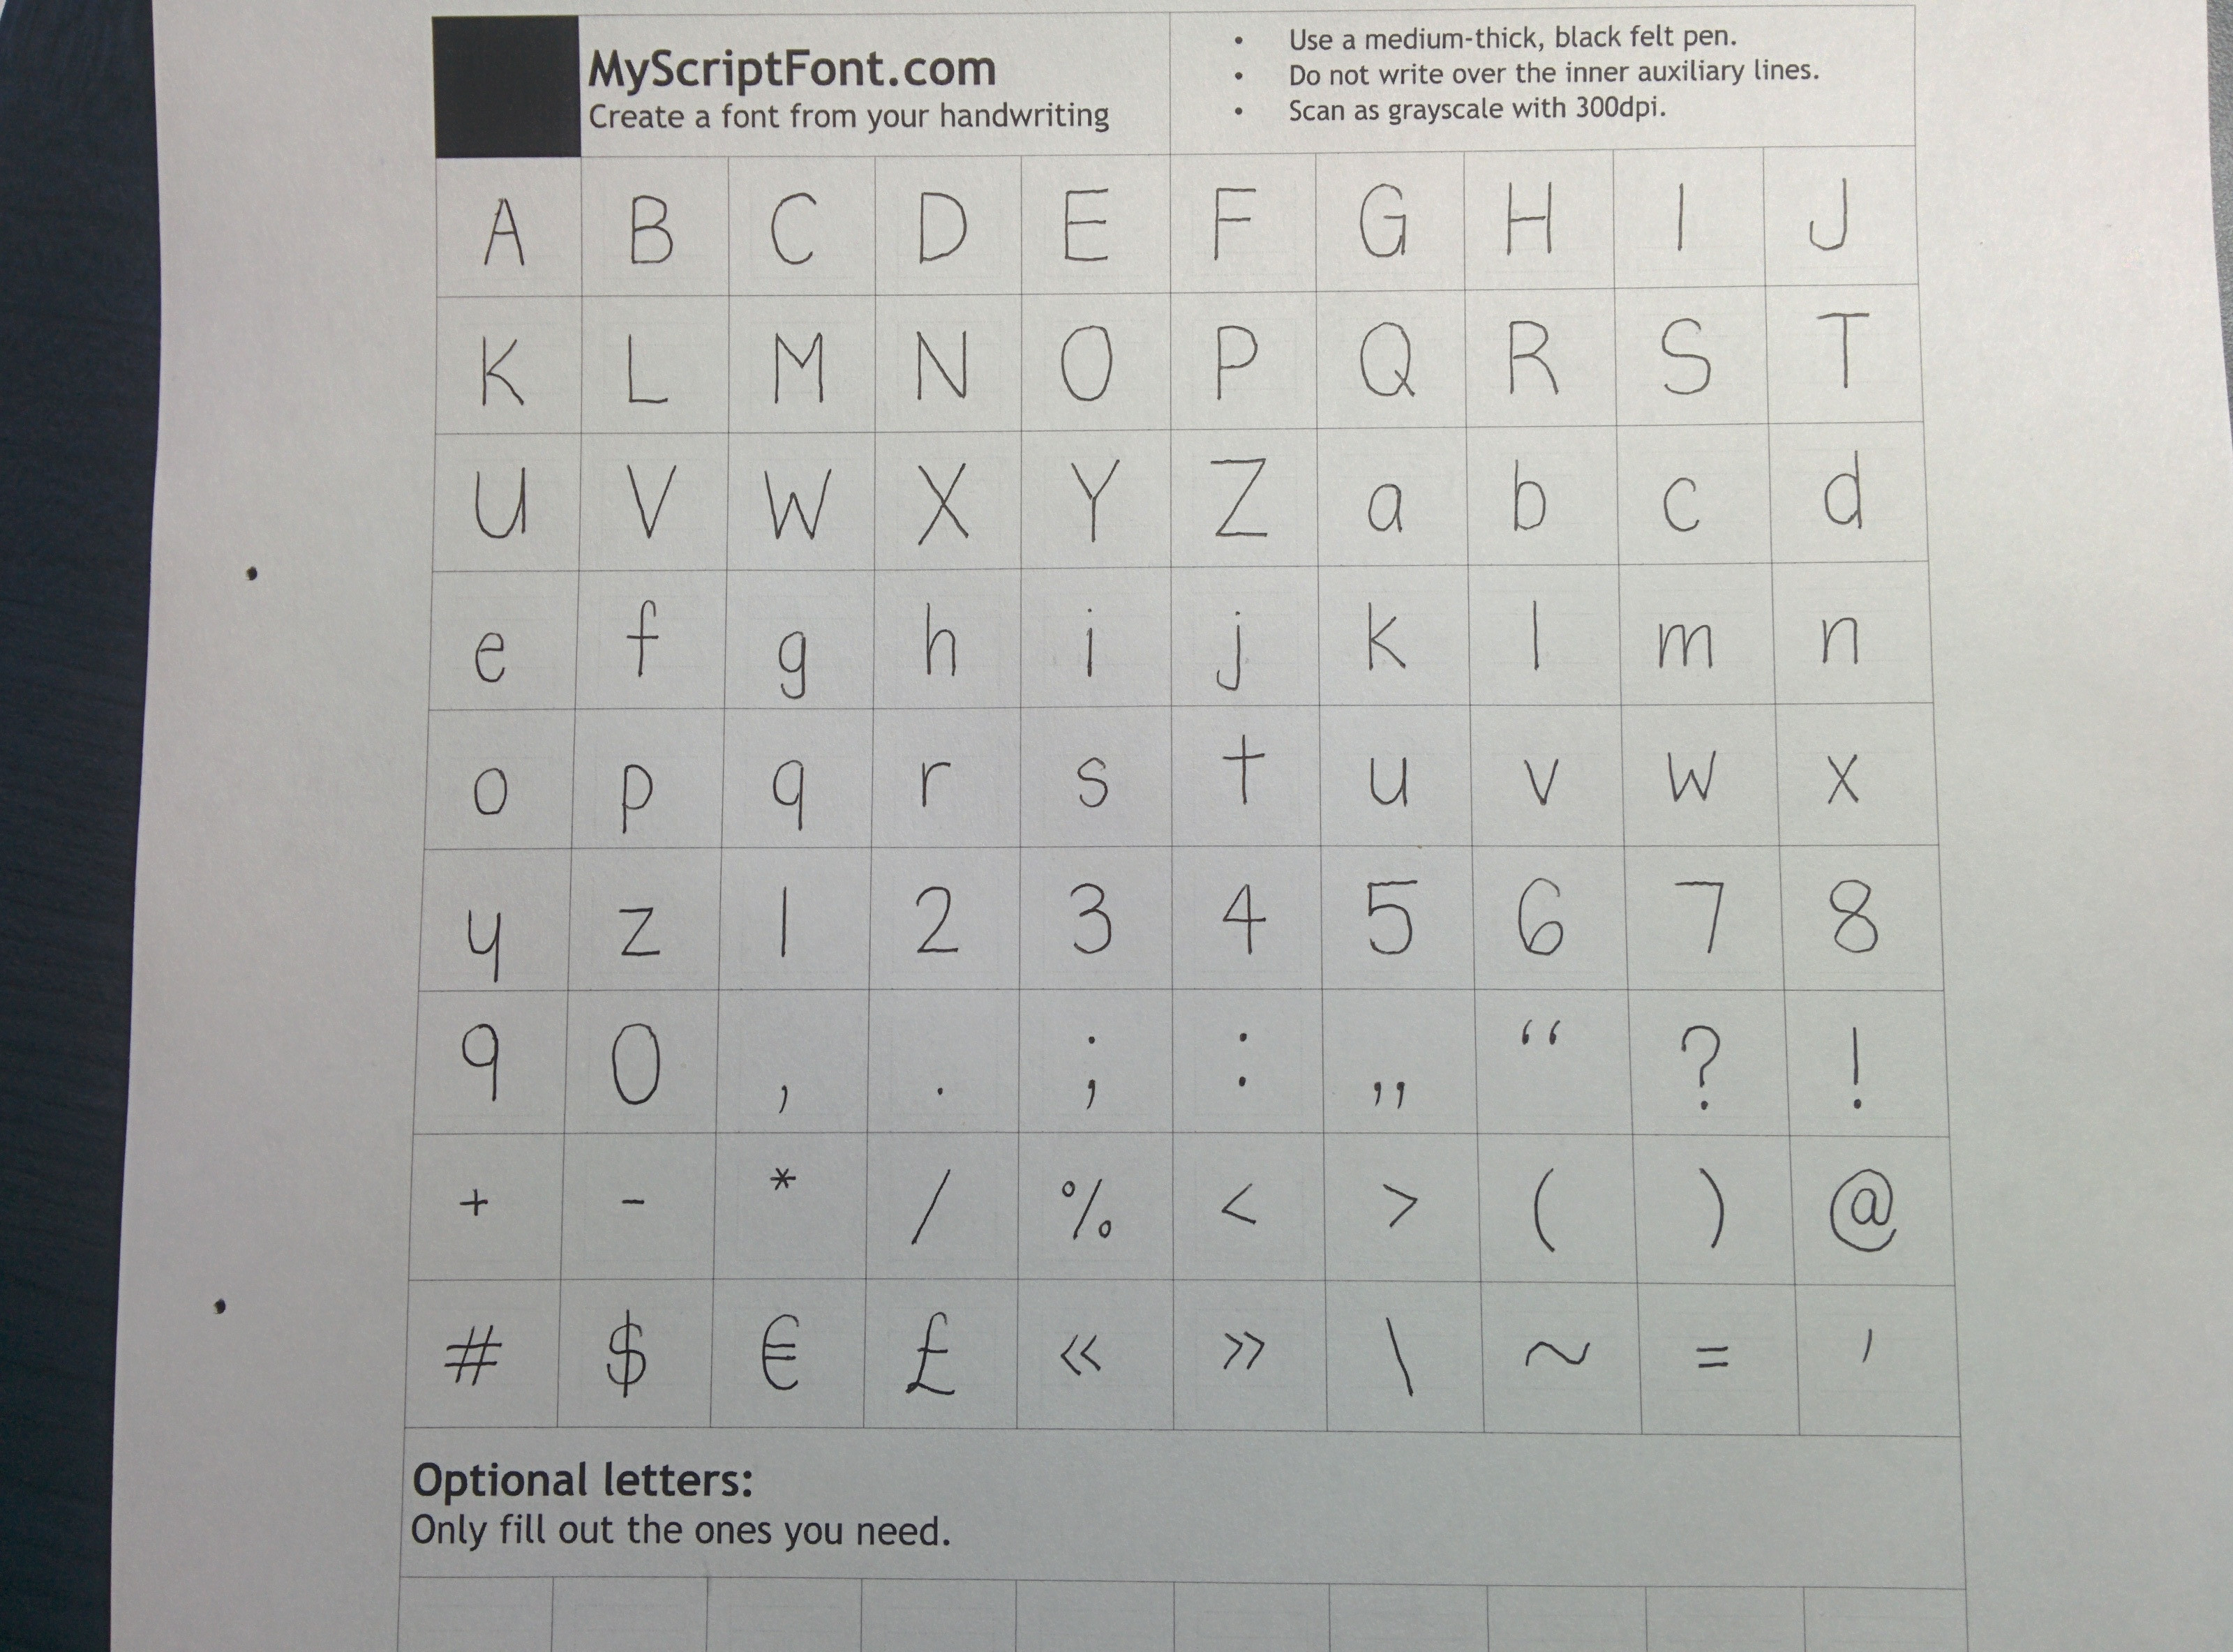 MyScriptFont.com
Create a font from your handwriting
• Use a medium-thick, black felt pen.
• Do not write over the inner auxiliary lines.
• Scan as grayscale with 300dpi.
A B C D E F G H I J
K L M N O P Q R S T
U V W X Y Z a b c d
e f g h i j k l m n
o p q r s t u v w x
y z 1 2 3 4 5 6 7 8
9 0 , . ; : „ “ ? !
+ - * / % < > ( ) @
# $ € £ « » \ ~ = '
Optional letters:
Only fill out the ones you need.